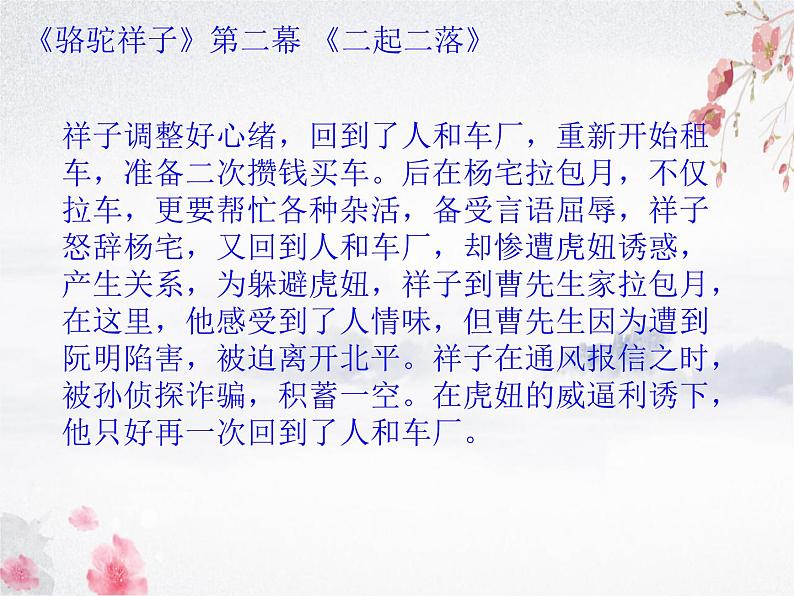 《骆驼祥子》第二幕 《二起二落》
祥子调整好心绪，回到了人和车厂，重新开始租
车，准备二次攒钱买车。后在杨宅拉包月，不仅
拉车，更要帮忙各种杂活，备受言语屈辱，祥子
怒辞杨宅，又回到人和车厂，却惨遭虎妞诱惑，
产生关系，为躲避虎妞，祥子到曹先生家拉包月，
在这里，他感受到了人情味，但曹先生因为遭到
阮明陷害，被迫离开北平。祥子在通风报信之时，
被孙侦探诈骗，积蓄一空。在虎妞的威逼利诱下，
他只好再一次回到了人和车厂。